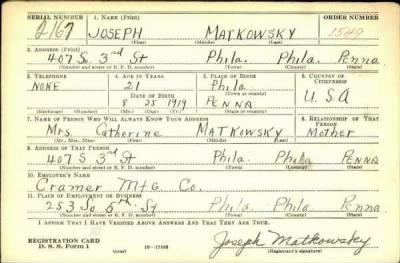 SERIAL NUMBER 1. NAME (Print) ORDER NUMBER
2167 JOSEPH MATKOWSKY 1549
(First) (Middle) (Last)
2. ADDRESS (Print)
407 So. 3rd St Phila. Phila. Penna
(Number and street or R. F. D. number) (Town) (County) (State)
3. TELEPHONE 4. AGE IN YEARS 5. PLACE OF BIRTH 6. COUNTRY OF CITIZENSHIP
NONE 21 Phila
DATE OF BIRTH (Town or county)
8 25 1919 PENNA U.S.A
(Exchange) (Number) (Mo.) (Day) (Yr.) (State or country)
7. NAME OF PERSON WHO WILL ALWAYS KNOW YOUR ADDRESS 8. RELATIONSHIP OF THAT PERSON
Mrs Catherine MATKOWSKY Mother
(Mr., Mrs., Miss) (First) (Middle) (Last)
9. ADDRESS OF THAT PERSON
407 S 3rd St Phila. Phila PENNA
(Number and street or R. F. D. number) (Town) (County) (State)
10. EMPLOYER'S NAME
Cramer Mfg. Co.
11. PLACE OF EMPLOYMENT OR BUSINESS
253 So 5th St Phila. Phila. Penna
(Number and street or R. F. D. number) (Town) (County) (State)
I AFFIRM THAT I HAVE VERIFIED ABOVE ANSWERS AND THAT THEY ARE TRUE.
REGISTRATION CARD
D. S. S. Form 1 (over) Joseph Matkowsky
(Registrant's signature)